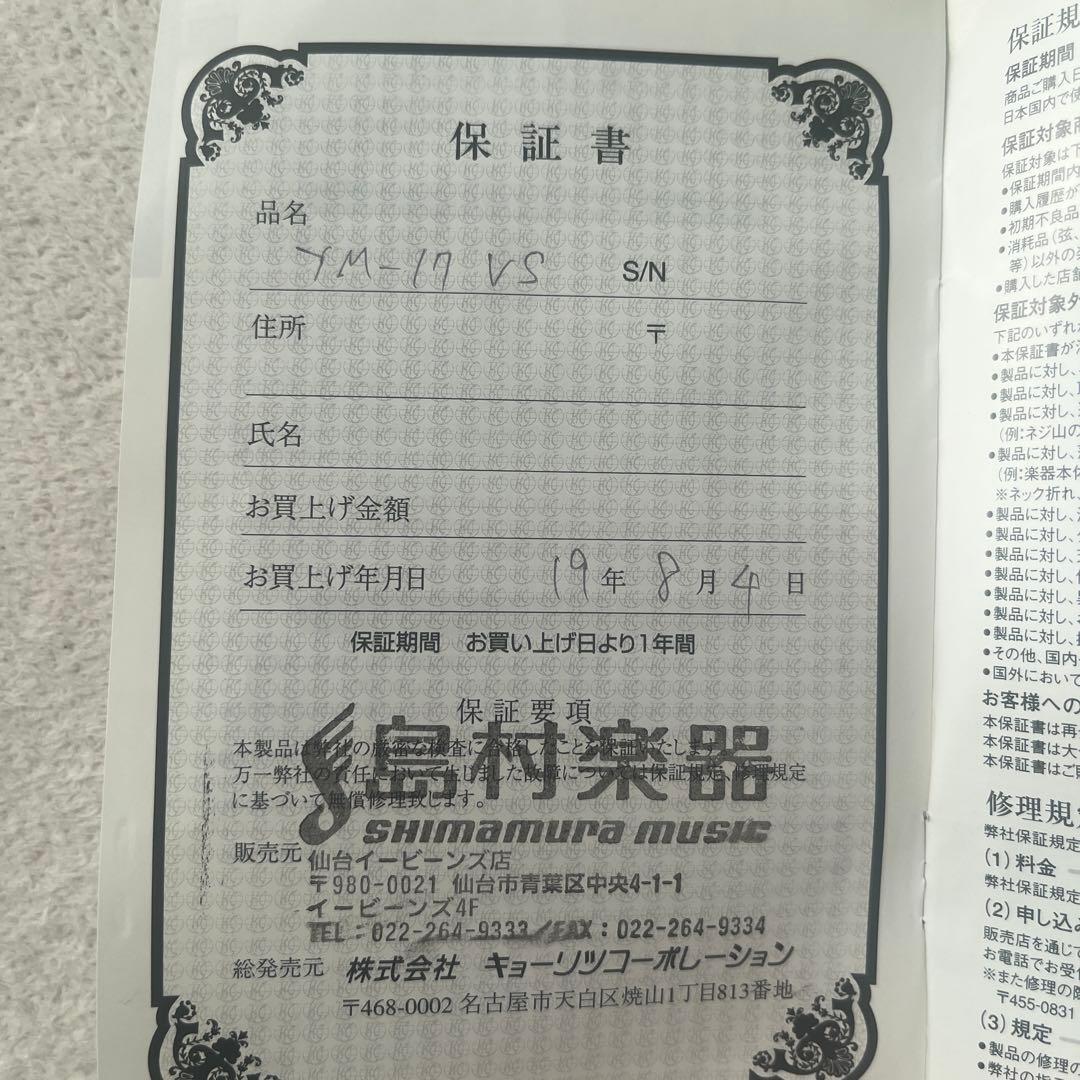 保証書
品名
YM-17 VS S/N
住所 〒
氏名
お買上げ金額
お買上げ年月日 19年 8月 4日
保証期間 お買い上げ日より1年間
保証要項
島村楽器
本製品は弊社の厳密な検査に合格したことを保証いたします。
万一弊社の責任において生じました故障については保証規定、修理規定
に基づいて無償修理致します。
shimamura music
販売元
仙台イービーンズ店
〒980-0021 仙台市青葉区中央4-1-1
イービーンズ4F
TEL:022-264-9333/FAX:022-264-9334
総発売元 株式会社 キョーリツコーポレーション
〒468-0002 名古屋市天白区焼山1丁目813番地
保証規
保証期間
商品ご購入日
日本国内で使
保証対象商
保証対象は下
•保証期間内
•購入履歴が
•初期不良品
•消耗品(弦、
等)以外の
•購入した店舗
保証対象外
下記のいずれ
•本保証書が
•製品に対し、
•製品に対し、
•製品に対し、
(例:ネジ山の
•製品に対し、
(例:楽器本体
※ネック折れ、
•製品に対し、
•製品に対し、
•製品に対し、
•製品に対し、
•製品に対し、
•製品に対し、
•製品に対し、
•その他、国内
•国外において
お客様への
本保証書は再
本保証書は大
本保証書はご
修理規定
弊社保証規定
(1)料金
弊社保証規定
(2)申し込み
販売店を通じて
お電話でお受
※また修理の際
〒455-0831
(3)規定
•製品の修理の